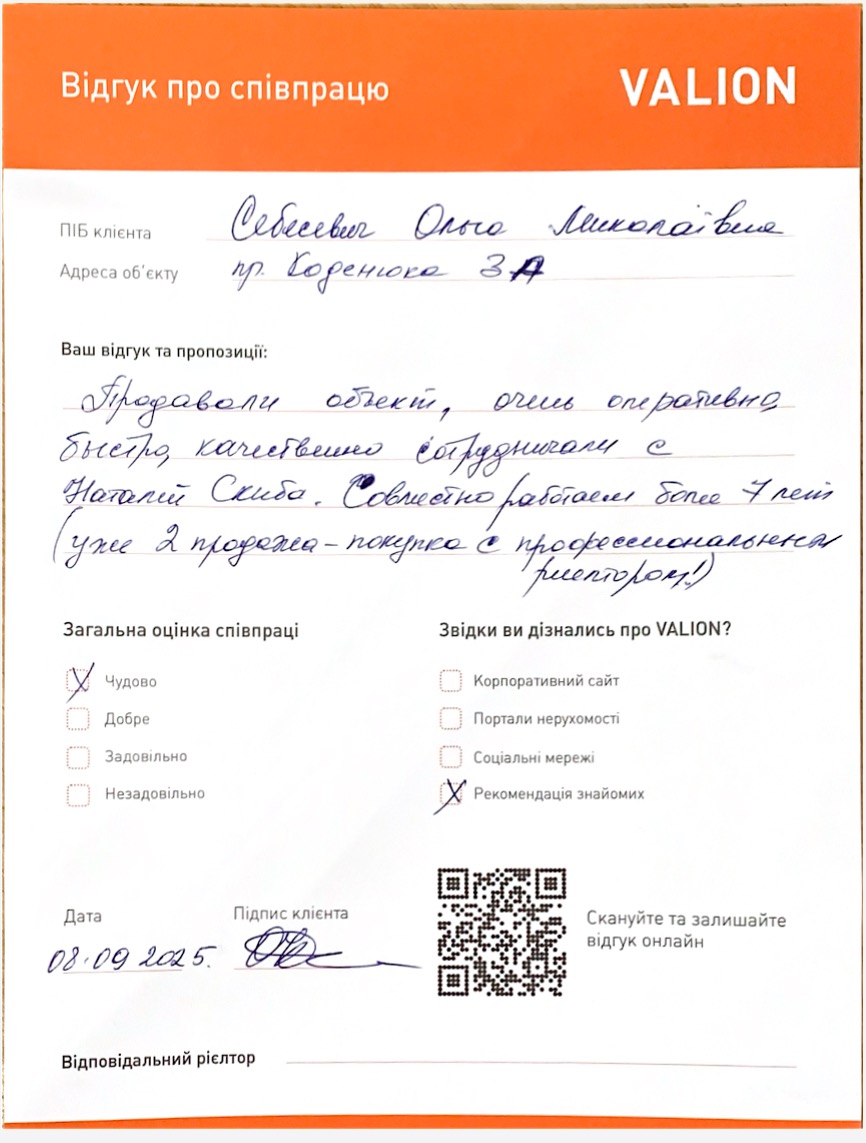 Відгук про співпрацю
VALION
ПІБ клієнта Себесевич Ольга Миколаївна
Адреса об'єкту пр. Каденюка 3А
Ваш відгук та пропозиції:
Продавали объект, очень оперативно,
быстро, качественно сотрудничали с
Наталией Скиба. Совместно работаем более 7 лет
(уже 2 продажа-покупка с профессиональным
риелтором!)
Загальна оцінка співпраці
Чудово
Добре
Задовільно
Незадовільно
Звідки ви дізнались про VALION?
Корпоративний сайт
Портали нерухомості
Соціальні мережі
Рекомендація знайомих
Дата
08.09 2025.
Підпис клієнта
Скануйте та залишайте
відгук онлайн
Відповідальний рієлтор